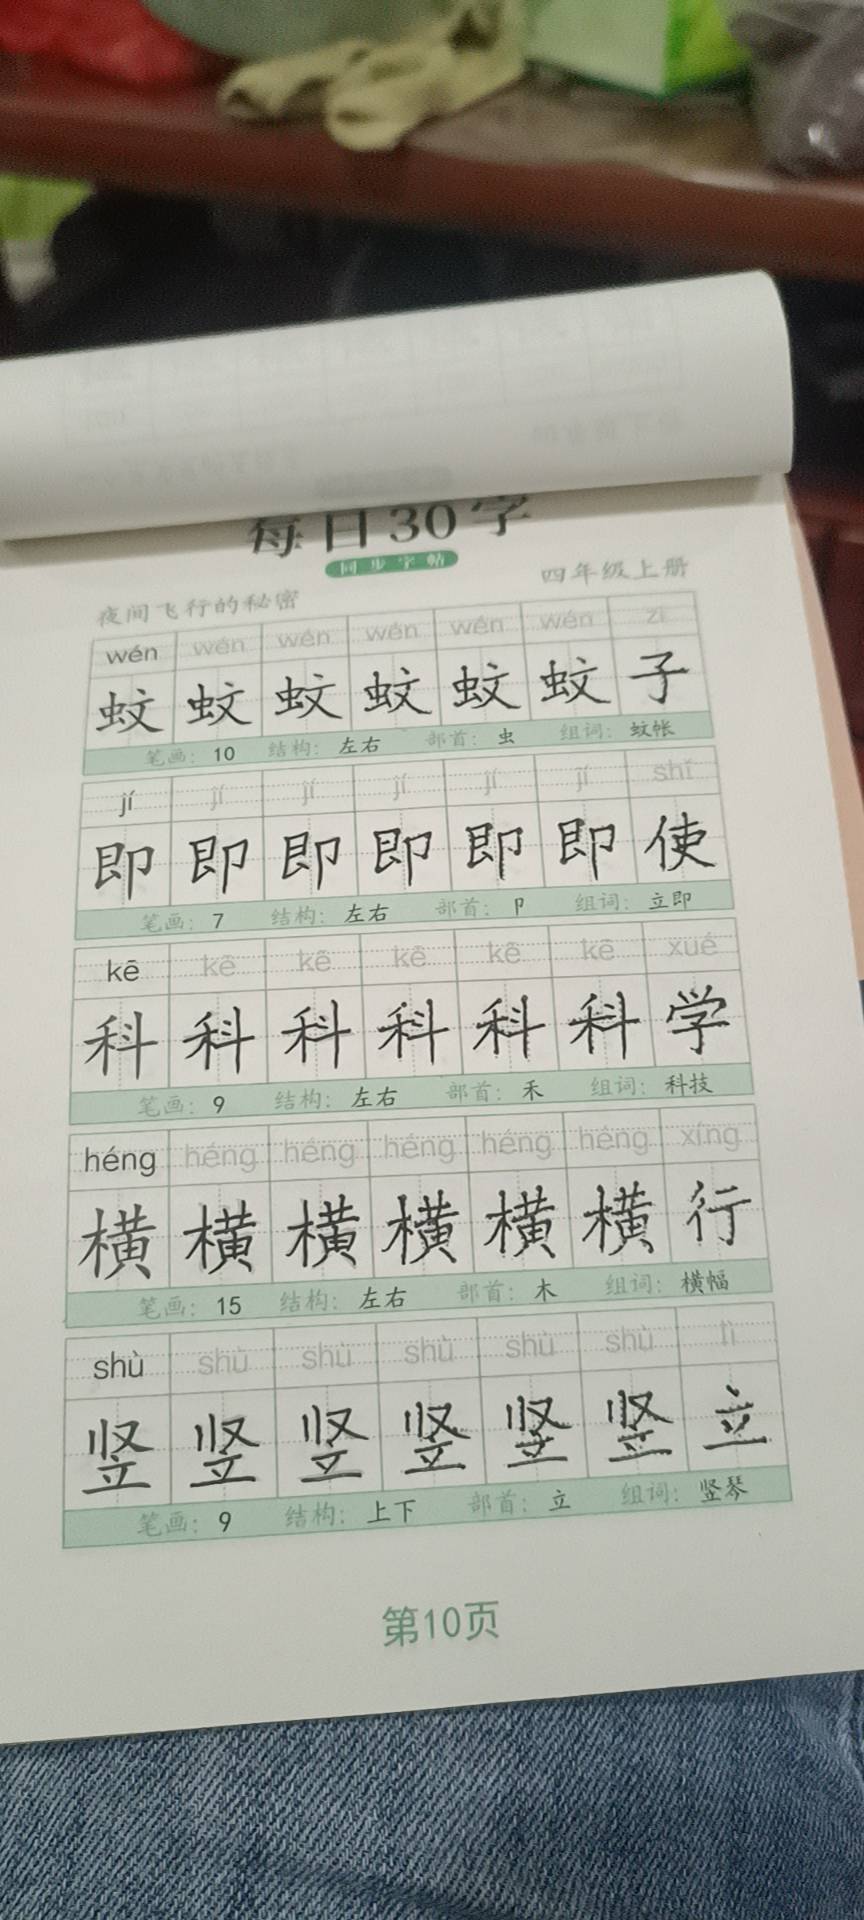 每日30字
同步字帖
四年级上册
夜间飞行的秘密
wén wén wén wén wén wén zi
蚊 蚊 蚊 蚊 蚊 蚊 子
笔画: 10 结构: 左右 部首: 虫 组词: 蚊帐
jí jí jí jí jí jí shǐ
即 即 即 即 即 即 使
笔画: 7 结构: 左右 部首: 卩 组词: 立即
kē kē kē kē kē kē xué
科 科 科 科 科 科 学
笔画: 9 结构: 左右 部首: 禾 组词: 科技
héng héng héng héng héng héng xíng
横 横 横 横 横 横 行
笔画: 15 结构: 左右 部首: 木 组词: 横幅
shù shù shù shù shù shù lì
竖 竖 竖 竖 竖 竖 立
笔画: 9 结构: 上下 部首: 立 组词: 竖琴
第10页